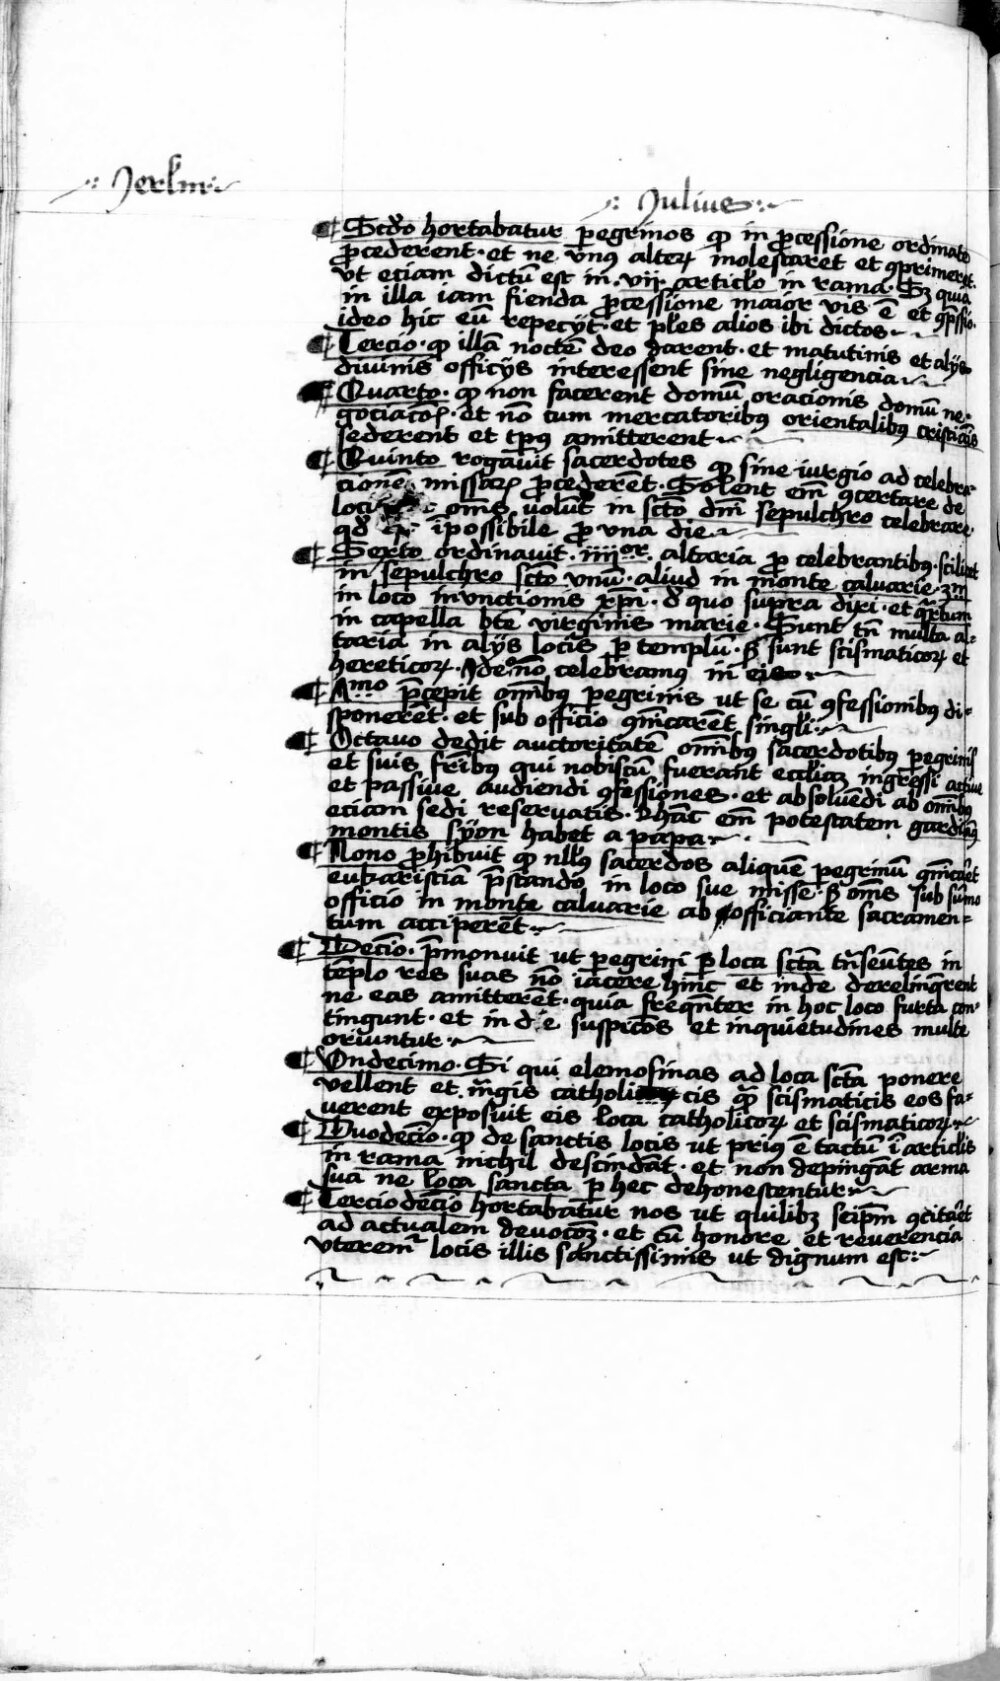 Jerlm
Julius
Scdo hortabatur pegrinos qp in pcessione ordinate
pcederent · et ne vnq alteri molestaret et 9primeret
vt eciam dictū est in · vij · articlo in rama · Sz quia
in illa iam fienda pcessione maior vis ē et
ideo hic eu repecyt · et ples alios ibi dictos ·
Tercio · qp illā noctē deo darent · et matutinis et alijs
diuinis officijs interessent sine negligencia
Quarto · qp non facerent domū oracionis domū ne-
gociacōis · et nō cum mercatoribq orientalibq cristianis
sederent et tpq amitterent
Quinto rogauit sacerdotes qp sine iurgio ad celebra-
cionē missarū pcederēt · Solent em̄ 9certare de
loc oms uolūt in scto dm̄ sepulchro celebrare
qd īpossibile p vna die
Sexto ordinauit · iiijor · altaria p celebrantibq · scilicet
in sepulchro scto vnū · aliud in monte caluarie · 3m
in loco invnctionis xpi · d quo supra dixi · et qrtum
in capella bte virginis marie · Sunt tn multa al-
taria in alijs locis p templū · s sunt scismaticorū et
hereticorū · Ideo nō celebramq in eis
Amo pcepit omībq pegrinis ut se cū 9fessionibq di-
sponerēt · et sub officio 9mcarēt singli
Octauo dedit auctoritatē omībq sacerdotibq pegrinis
et suis fribq qui nobiscū fuerant eccliaz ingressi actiue
et passiue audiendi 9fessiones · et absoluēdi ab omībq
eciam sedi reseruatis · hāc em̄ potestatem gardianq
montis syon habet a papa
Nono phibuit qp nllq sacerdos aliquē pegrinū 9mcaret
eukaristiā pstando in loco sue misse · s oms sub sūmo
officio in monte caluarie ab officiante sacramen-
tum acciperēt
Decīo · pmonuit ut pegrini p loca scta trseūtes in
tēplo res suas nō iacere hinc et inde derelinqrent
ne eas amitterēt · quia freqnter in hoc loco furta con-
tingunt · et inde suspicōes et inquietudines multe
oriuntur
Vndecimo · Si qui elemosinas ad loca scta ponere
vellent et mgis catholicis qm scismaticis eos fa-
uerent exposuit eis loca catholicorū et scismaticorū
Duodecīo · qp de sanctis locis ut priq ē tactū ī articlis
in rama nichil descindāt · et non depingāt arma
sua ne loca sancta p hec dehonestentur
Terciodecīo hortabatur nos ut quilibz seipm 9citaret
ad actualem deuocōz · et cū honore et reuerencia
vteremr locis illis sanctissimis ut dignum est